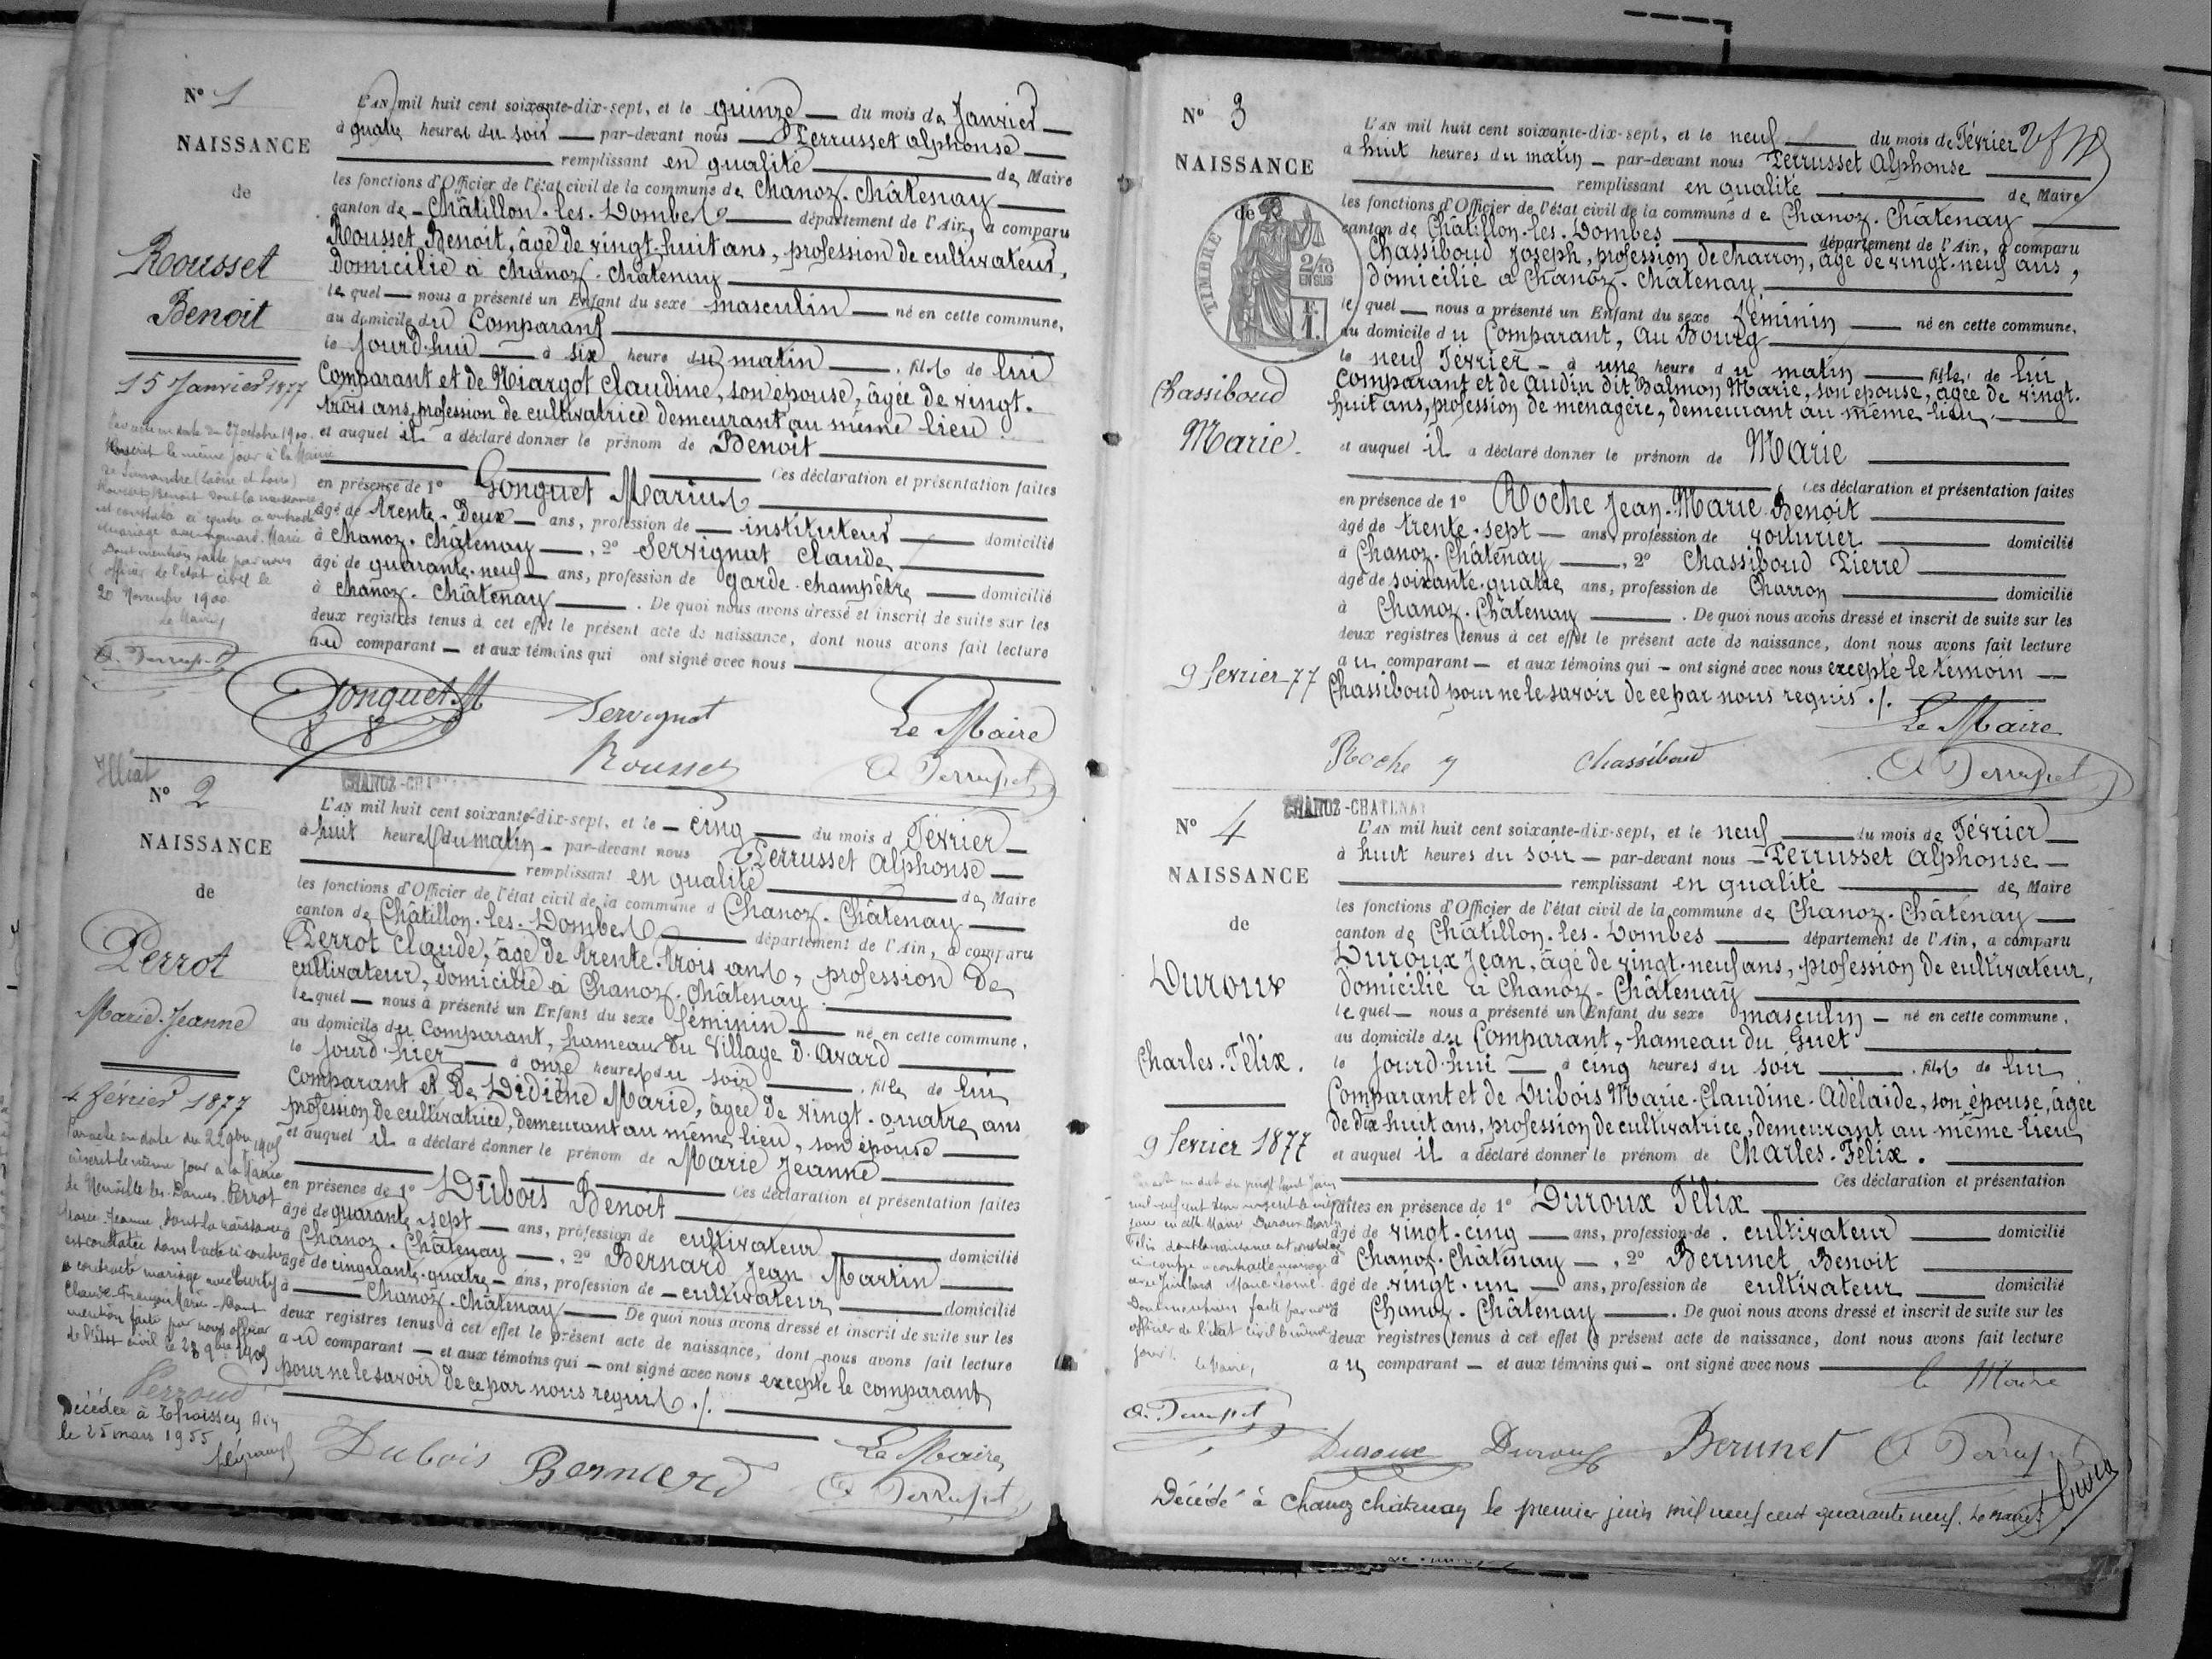 N° 1
NAISSANCE
de
Rousset
Benoit
15 Janvier 1877
L'AN mil huit cent soixante-dix-sept, et le quinze du mois de Janvier
à quatre heures du soir par-devant nous Perrusset Alphonse
remplissant en qualité de Maire
les fonctions d'Officier de l'état civil de la commune de Chanoz-Châtenay
canton de Châtillon-les-Dombes département de l'Ain, a comparu
Rousset Benoit, âgé de vingt-huit ans, profession de cultivateur,
domicilié à Chanoz-Châtenay
lequel nous a présenté un Enfant du sexe masculin né en cette commune,
au domicile du Comparant
le jourd'hui à six heure du matin, fils de lui
Comparant et de Niargot Claudine, son épouse, âgée de vingt-
trois ans, profession de cultivatrice demeurant au même lieu
et auquel il a déclaré donner le prénom de Benoit
Ces déclaration et présentation faites
en présence de 1° Gonguet Marius
âgé de trente-deux ans, profession de instituteur domicilié
à Chanoz-Châtenay, 2° Servignat Claude
âgé de quarante-neuf ans, profession de garde-champêtre domicilié
à Chanoz-Châtenay. De quoi nous avons dressé et inscrit de suite sur les
deux registres tenus à cet effet le présent acte de naissance, dont nous avons fait lecture
au comparant et aux témoins qui ont signé avec nous
par acte en date du 27 octobre 1900
inscrit le même jour à la Mairie
de (Saône et Loire)
Rousset Benoit dont la naissance
est constatée ci contre a contracté
mariage avec Marie
Dont mention faite par nous
officier de l'état civil le
20 Novembre 1900
Le Maire
A. Perrusset
Gonguet M
Servignat
Le Maire
Rousset
A Perrusset
Illiat
CHANOZ-CHA
N° 2
NAISSANCE
de
Perrot
Marie-Jeanne
4 février 1877
L'AN mil huit cent soixante-dix-sept, et le cinq du mois d Février
à huit heures du matin par-devant nous Perrusset Alphonse
remplissant en qualité de Maire
les fonctions d'Officier de l'état civil de la commune d Chanoz-Châtenay
canton de Châtillon-les-Dombes département de l'Ain, a comparu
Perrot Claude, âgé de trente-trois ans, profession de
cultivateur, domicilié à Chanoz-Châtenay.
lequel nous a présenté un Enfant du sexe féminin né en cette commune,
au domicile du Comparant, hameau du Village d'Avard
le jourd'hier à onze heures du soir, fille de lui
Comparant et de Didiène Marie, âgée de vingt-quatre ans
profession de cultivatrice, demeurant au même lieu, son épouse
et auquel il a déclaré donner le prénom de Marie Jeanne
Ces déclaration et présentation faites
en présence de 1° Dubois Benoit
âgé de quarante sept ans, profession de cultivateur domicilié
à Chanoz-Châtenay, 2° Bernard Jean Martin
âgé de cinquante-quatre ans, profession de cultivateur domicilié
à Chanoz-Châtenay De quoi nous avons dressé et inscrit de suite sur les
deux registres tenus à cet effet le présent acte de naissance, dont nous avons fait lecture
au comparant et aux témoins qui ont signé avec nous excepté le comparant
pour ne le savoir de ce par nous requis ./.
Par acte en date du 22 9bre 1905
inscrit le même jour à la Mairie
de Neuville-les-Dames, Perrot
Marie-Jeanne, dont la naissance
est constatée dans l'acte ci contre
a contracté mariage avec Curty
Claude-François-Marie. Dont
mention faite par nous officier
de l'état civil le 28 9bre 1905
Perroud
Décédée à Thoissey Ain
le 25 mars 1955
Dubois
Bernierd
Le Maire
A Perrusset
N° 3
NAISSANCE
de
TIMBRE
2/10
EN SUS
F.
1.
Chassiboud
Marie.
9 fevrier 77
L'AN mil huit cent soixante-dix-sept, et le neuf du mois de Février
à huit heures du matin par-devant nous Perrusset Alphonse
remplissant en qualité de Maire
les fonctions d'Officier de l'état civil de la commune d e Chanoz-Châtenay
canton de Châtillon-les-Dombes département de l'Ain, a comparu
Chassiboud Joseph, profession de charron, âgé de vingt-neuf ans,
domicilié à Chanoz-Châtenay
lequel nous a présenté un Enfant du sexe féminin né en cette commune,
au domicile du Comparant, au Bourg
le neuf Février à une heure du matin fille de lui
Comparant et de Audin dit Balmon Marie, son épouse, âgée de vingt-
huit ans, profession de ménagère, demeurant au même lieu
et auquel il a déclaré donner le prénom de Marie
Ces déclaration et présentation faites
en présence de 1° Roche Jean-Marie Benoit
âgé de trente-sept ans, profession de voiturier domicilié
à Chanoz-Châtenay, 2° Chassiboud Pierre
âgé de soixante-quatre ans, profession de Charron domicilié
à Chanoz-Châtenay. De quoi nous avons dressé et inscrit de suite sur les
deux registres tenus à cet effet le présent acte de naissance, dont nous avons fait lecture
au comparant et aux témoins qui ont signé avec nous excepté le témoin
Chassiboud pour ne le savoir de ce par nous requis ./.
Le Maire
Roche
Chassiboud
A Perrusset
CHANOZ-CHATENAY
N° 4
NAISSANCE
de
Duroux
Charles-Félix.
9 fevrier 1877
L'AN mil huit cent soixante-dix-sept, et le neuf du mois de Février
à huit heures du soir par-devant nous Perrusset Alphonse
remplissant en qualité de Maire
les fonctions d'Officier de l'état civil de la commune de Chanoz-Châtenay
canton de Châtillon-les-Dombes département de l'Ain, a comparu
Duroux Jean, âgé de vingt-neuf ans, profession de cultivateur,
domicilié à Chanoz-Châtenay
lequel nous a présenté un Enfant du sexe masculin né en cette commune,
au domicile du Comparant, hameau du Guet
le jourd'hui à cinq heures du soir, fils de lui
Comparant et de Dubois Marie-Claudine-Adélaide, son épouse, âgée
de dix huit ans, profession de cultivatrice, demeurant au même lieu
et auquel il a déclaré donner le prénom de Charles-Félix.
Ces déclaration et présentation
faites en présence de 1° Duroux Félix
âgé de vingt-cinq ans, profession de cultivateur domicilié
à Chanoz-Châtenay, 2° Berunet Benoit
âgé de vingt-un ans, profession de cultivateur domicilié
à Chanoz-Châtenay. De quoi nous avons dressé et inscrit de suite sur les
deux registres tenus à cet effet le présent acte de naissance, dont nous avons fait lecture
au comparant et aux témoins qui ont signé avec nous
Duroux Charles
Félix dont la naissance est constatée
ci contre a contracté mariage
avec
Dont mention faite par nous
officier de l'état civil le même
jour.
le Maire,
le Maire
A. Perrusset
Duroux
Duroux
Berunet
A Perrusset
Décédé à Chanoz Châtenay le premier juin mil neuf cent quarante neuf. Le Maire